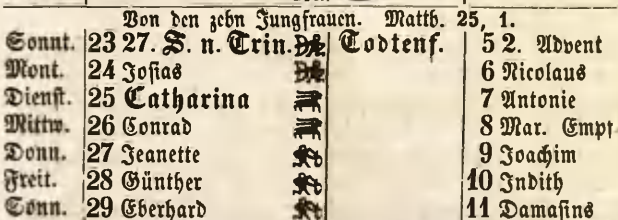 Von den zehn Jungfrauen. Matth. 25, 1.
Sonnt. 23 27. S. n. Trin. Todtenf. 5 2. Advent
Mont. 24 Josias 6 Nicolaus
Dienst. 25 Catharina 7 Antonie
Mittw. 26 Conrad 8 Mar. Empf
Donn. 27 Jeanette 9 Joachim
Freit. 28 Günther 10 Judith
Sonn. 29 Eberhard 11 Damasius